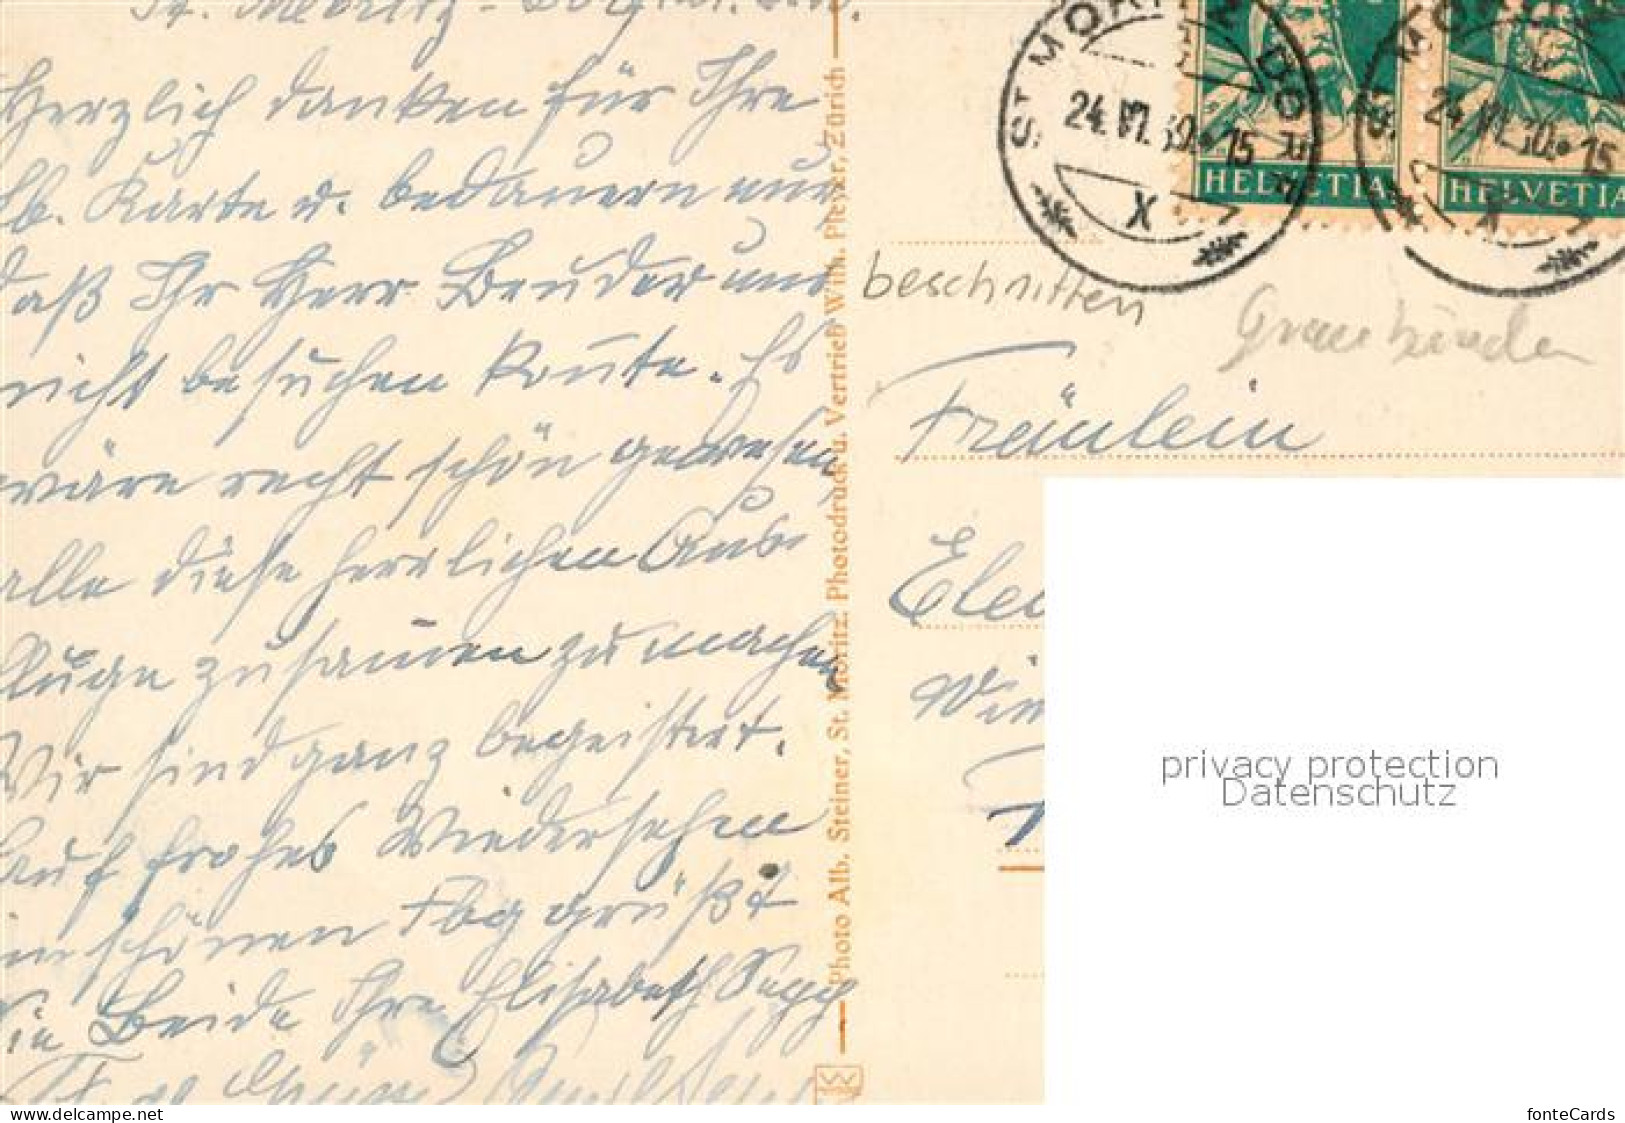 St. Moritz
Herzlich danken für Ihre
lb. Karte u. bedauern nur
daß Ihr Herr Bruder uns
nicht besuchen konnte. Es
wäre recht schön gewesen,
alle diese herrlichen Aus-
flüge zusammen zu machen
Wir sind ganz begeistert.
Auf frohes Wiedersehen
schönen Tag grüßt
Sie Beide Ihre Elisabeth
Photo Alb. Steiner, St. Moritz. Photodruck u. Vertrieb Wilh. Pleyer, Zürich
ST. MORITZ DORF
24. VI. 30. 15
X
HELVETIA
24. VI. 30. 15
X
HELVETIA
beschnitten
Graubünden
Fräulein
privacy protection
Datenschutz
www.delcampe.net
fonteCards